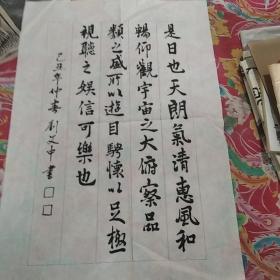 是日也天朗氣清惠風和
暢仰觀宇宙之大俯察品
類之盛所以遊目騁懷以足極
視聽之娛信可樂也
己丑年仲春劉文中書